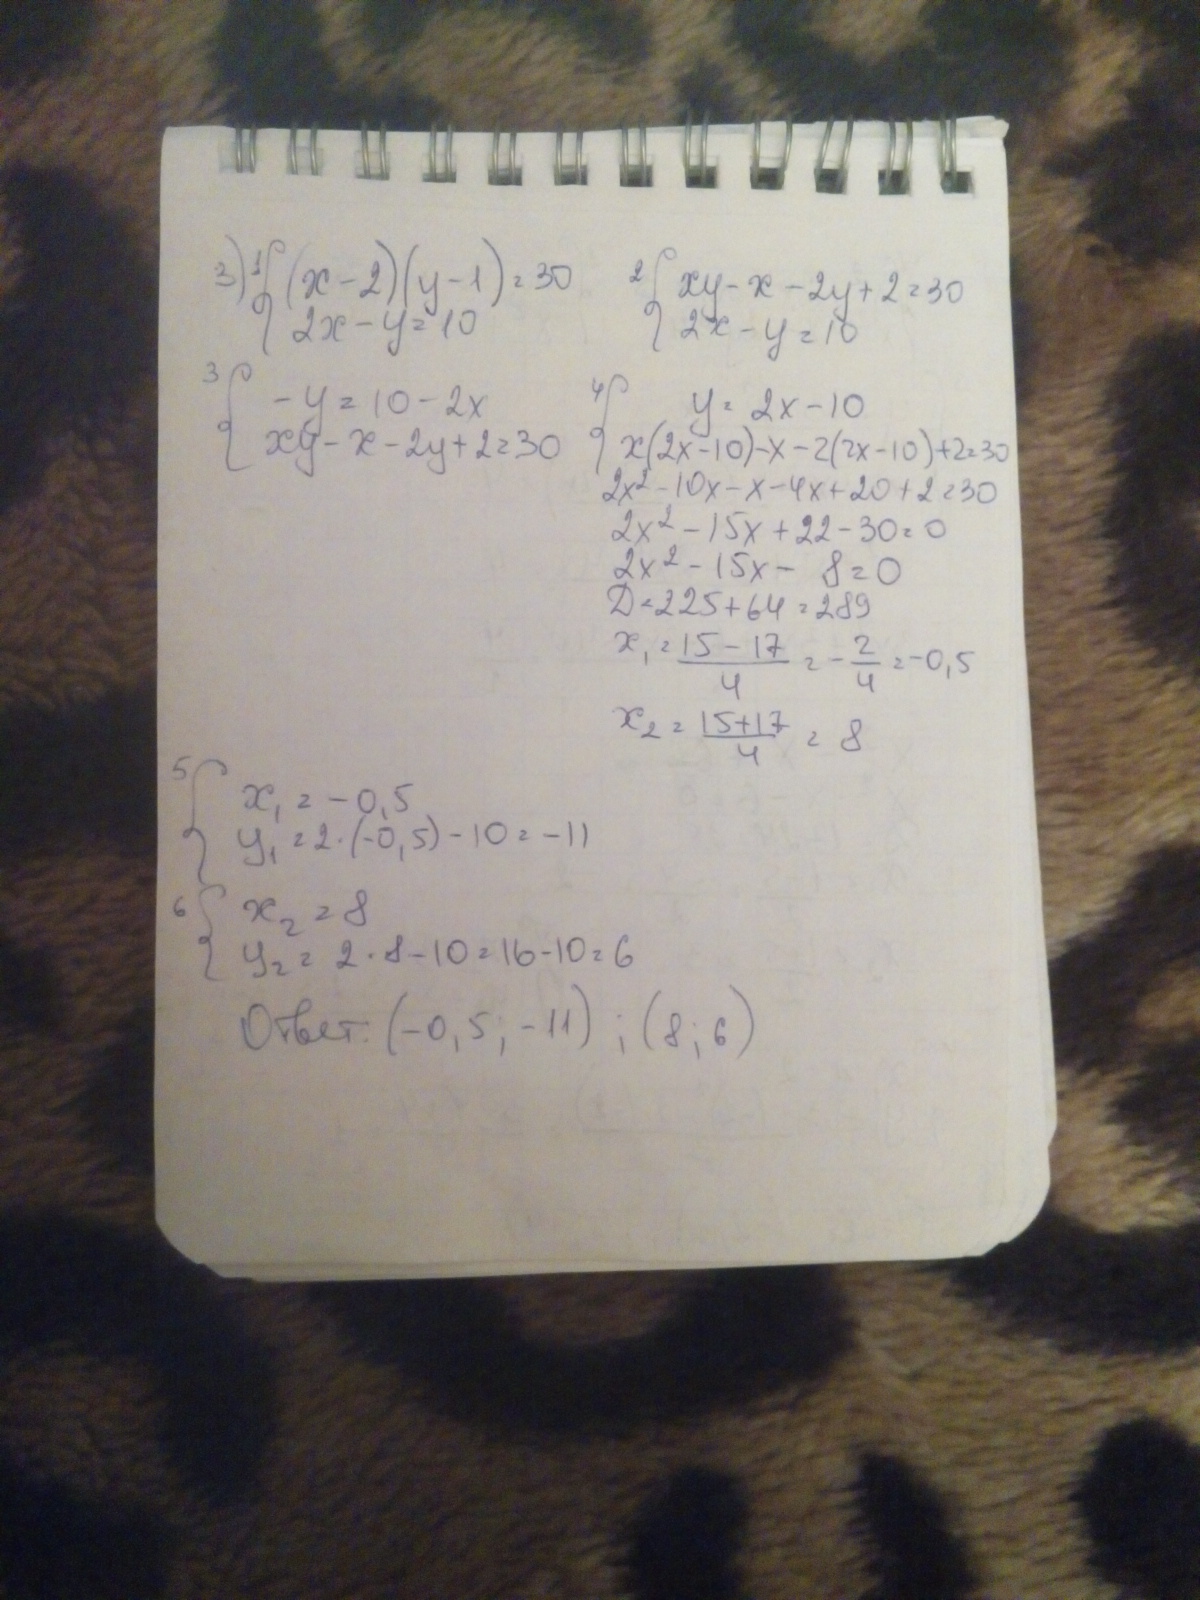 3) 1 { (x-2)(y-1)=30
2x-y=10
2 { xy-x-2y+2=30
2x-y=10
3 { -y=10-2x
xy-x-2y+2=30
4 { y=2x-10
x(2x-10)-x-2(2x-10)+2=30
2x²-10x-x-4x+20+2=30
2x²-15x+22-30=0
2x²-15x-8=0
D=225+64=289
x₁=(15-17)/4=-2/4=-0,5
x₂=(15+17)/4=8
5 { x₁=-0,5
y₁=2·(-0,5)-10=-11
6 { x₂=8
y₂=2·8-10=16-10=6
Ответ: (-0,5;-11);(8;6)